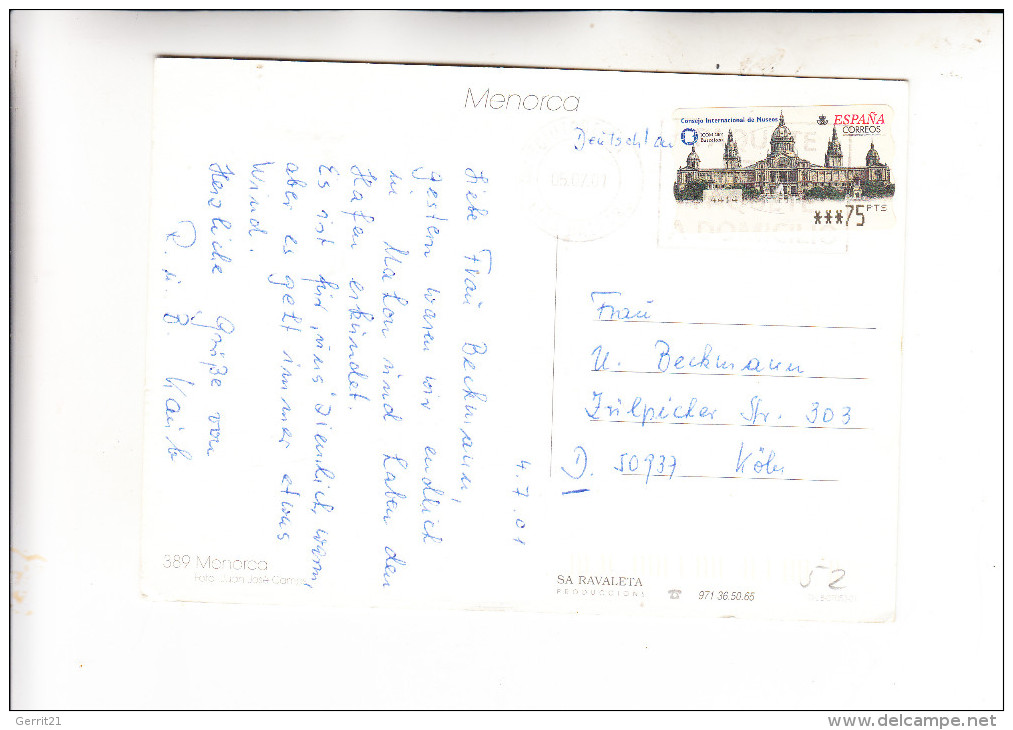 Menorca
Deutschland
Consejo Internacional de Museos
ICOM 2001
Barcelona
ESPAÑA
CORREOS
4414
***75 PTS
05.07.01
A DOMICILIO
4.7.01
Liebe Frau Beckmann,
gestern waren wir endlich
in Mahon und haben den
Hafen erkundet.
Es ist für uns ziemlich warm,
aber es geht immer etwas
Wind.
Herzliche Grüße von
R. u. B.
Frau
U. Beckmann
Zülpicher Str. 303
D. 50937 Köln
389 Menorca
Foto: Juan José
SA RAVALETA
PRODUCCIONS
☎ 971 36.50.65
52
Gerrit21
www.delcampe.net